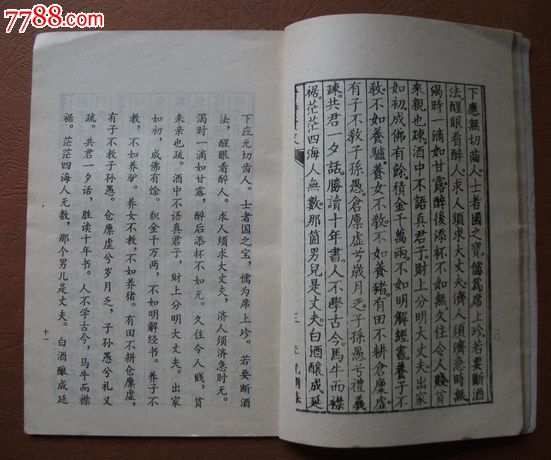 7788.com
下應無切齒人。士者國之寶。儒爲席上珍。若要斷酒
法。醒眼看醉人。求人須求大丈夫。濟人須濟急時無。
渴時一滴如甘露。醉後添杯不如無。久住令人賤。貧
來親也疎。酒中不語真君子。財上分明大丈夫。出家
如初。成佛有餘。積金千萬兩。不如明解經書。養子不
教。不如養驢。養女不教。不如養豬。有田不耕倉廩虛。
有子不教子孫愚。倉廩虛兮歲月乏。子孫愚兮禮義
疎。共君一夕話。勝讀十年書。人不學古今。馬牛而襟
裾。茫茫四海人無數。那箇男兒是丈夫。白酒釀成延
三
下应无切齿人。士者国之宝，儒为席上珍。若要断酒
法，醒眼看醉人。求人须求大丈夫，济人须济急时无。
渴时一滴如甘露，醉后添杯不如无。久住令人贱，贫
来亲也疏。酒中不语真君子，财上分明大丈夫。出家
如初，成佛有余。积金千万两，不如明解经书。养子不
教，不如养驴。养女不教，不如养猪。有田不耕仓廪虚，
有子不教子孙愚。仓廪虚兮岁月乏，子孙愚兮礼义
疏。共君一夕话，胜读十年书。人不学古今，马牛而襟
裾。茫茫四海人无数，那个男儿是丈夫。白酒酿成延
十一